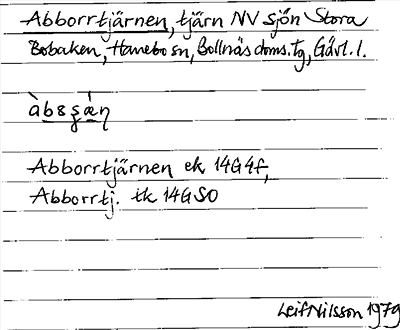 Abborrtjärnen, tjärn NV sjön Stora
Bobaken, Hanebo sn, Bollnäs doms. tg, Gävl. l.
Abborrtjärnen ek 14G4f,
Abborrtj. tk 14G SO
Leif Nilsson 1979